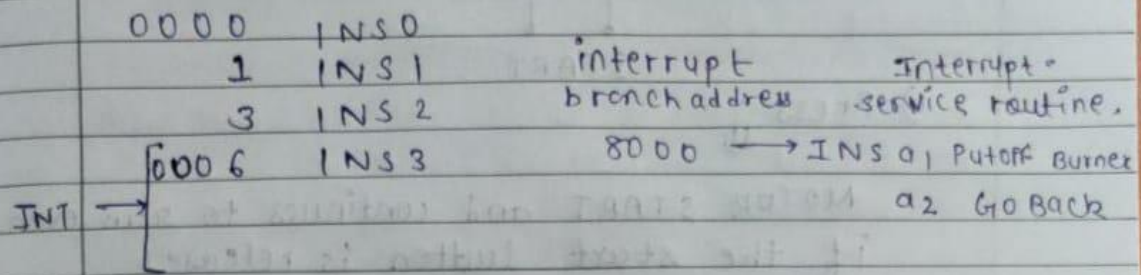 0000 INS0
1 INS1 interrupt Interrupt
3 INS2 bronch address service routine.
0006 INS3 8000 → INS a1 Putoff Burner
INT → a2 Go Back